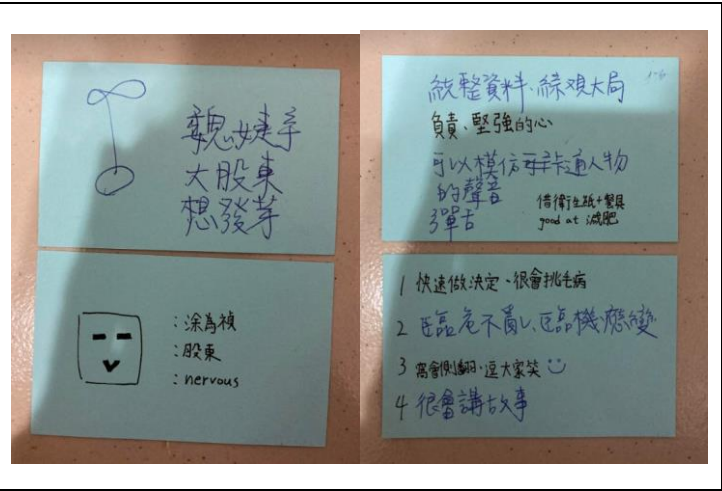 魏婕芋
大股東
想發芽
:涂為禎
:股東
:nervous
統整資料、綜觀大局
負責、堅強的心
可以模仿卡通人物
的聲音
彈古
借衛生紙+餐具
good at 減肥
1 快速做決定、很會挑毛病
2 臨危不亂、臨機應變
3 窩會側翻、逗大家笑
4 很會講故事